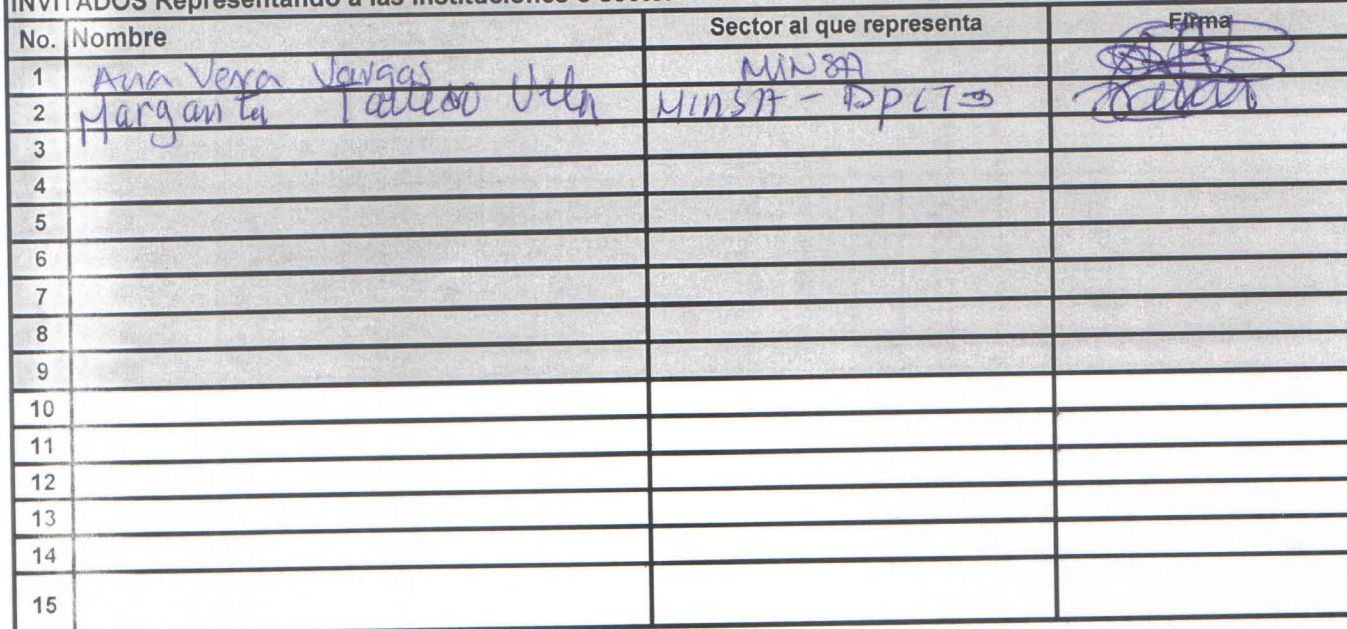 INVITADOS Representando a las instituciones o sector
No. Nombre Sector al que representa Firma
1 Ana Vera Vargas MINSA
2 Margarita MINSA - DPCTB
3
4
5
6
7
8
9
10
11
12
13
14
15